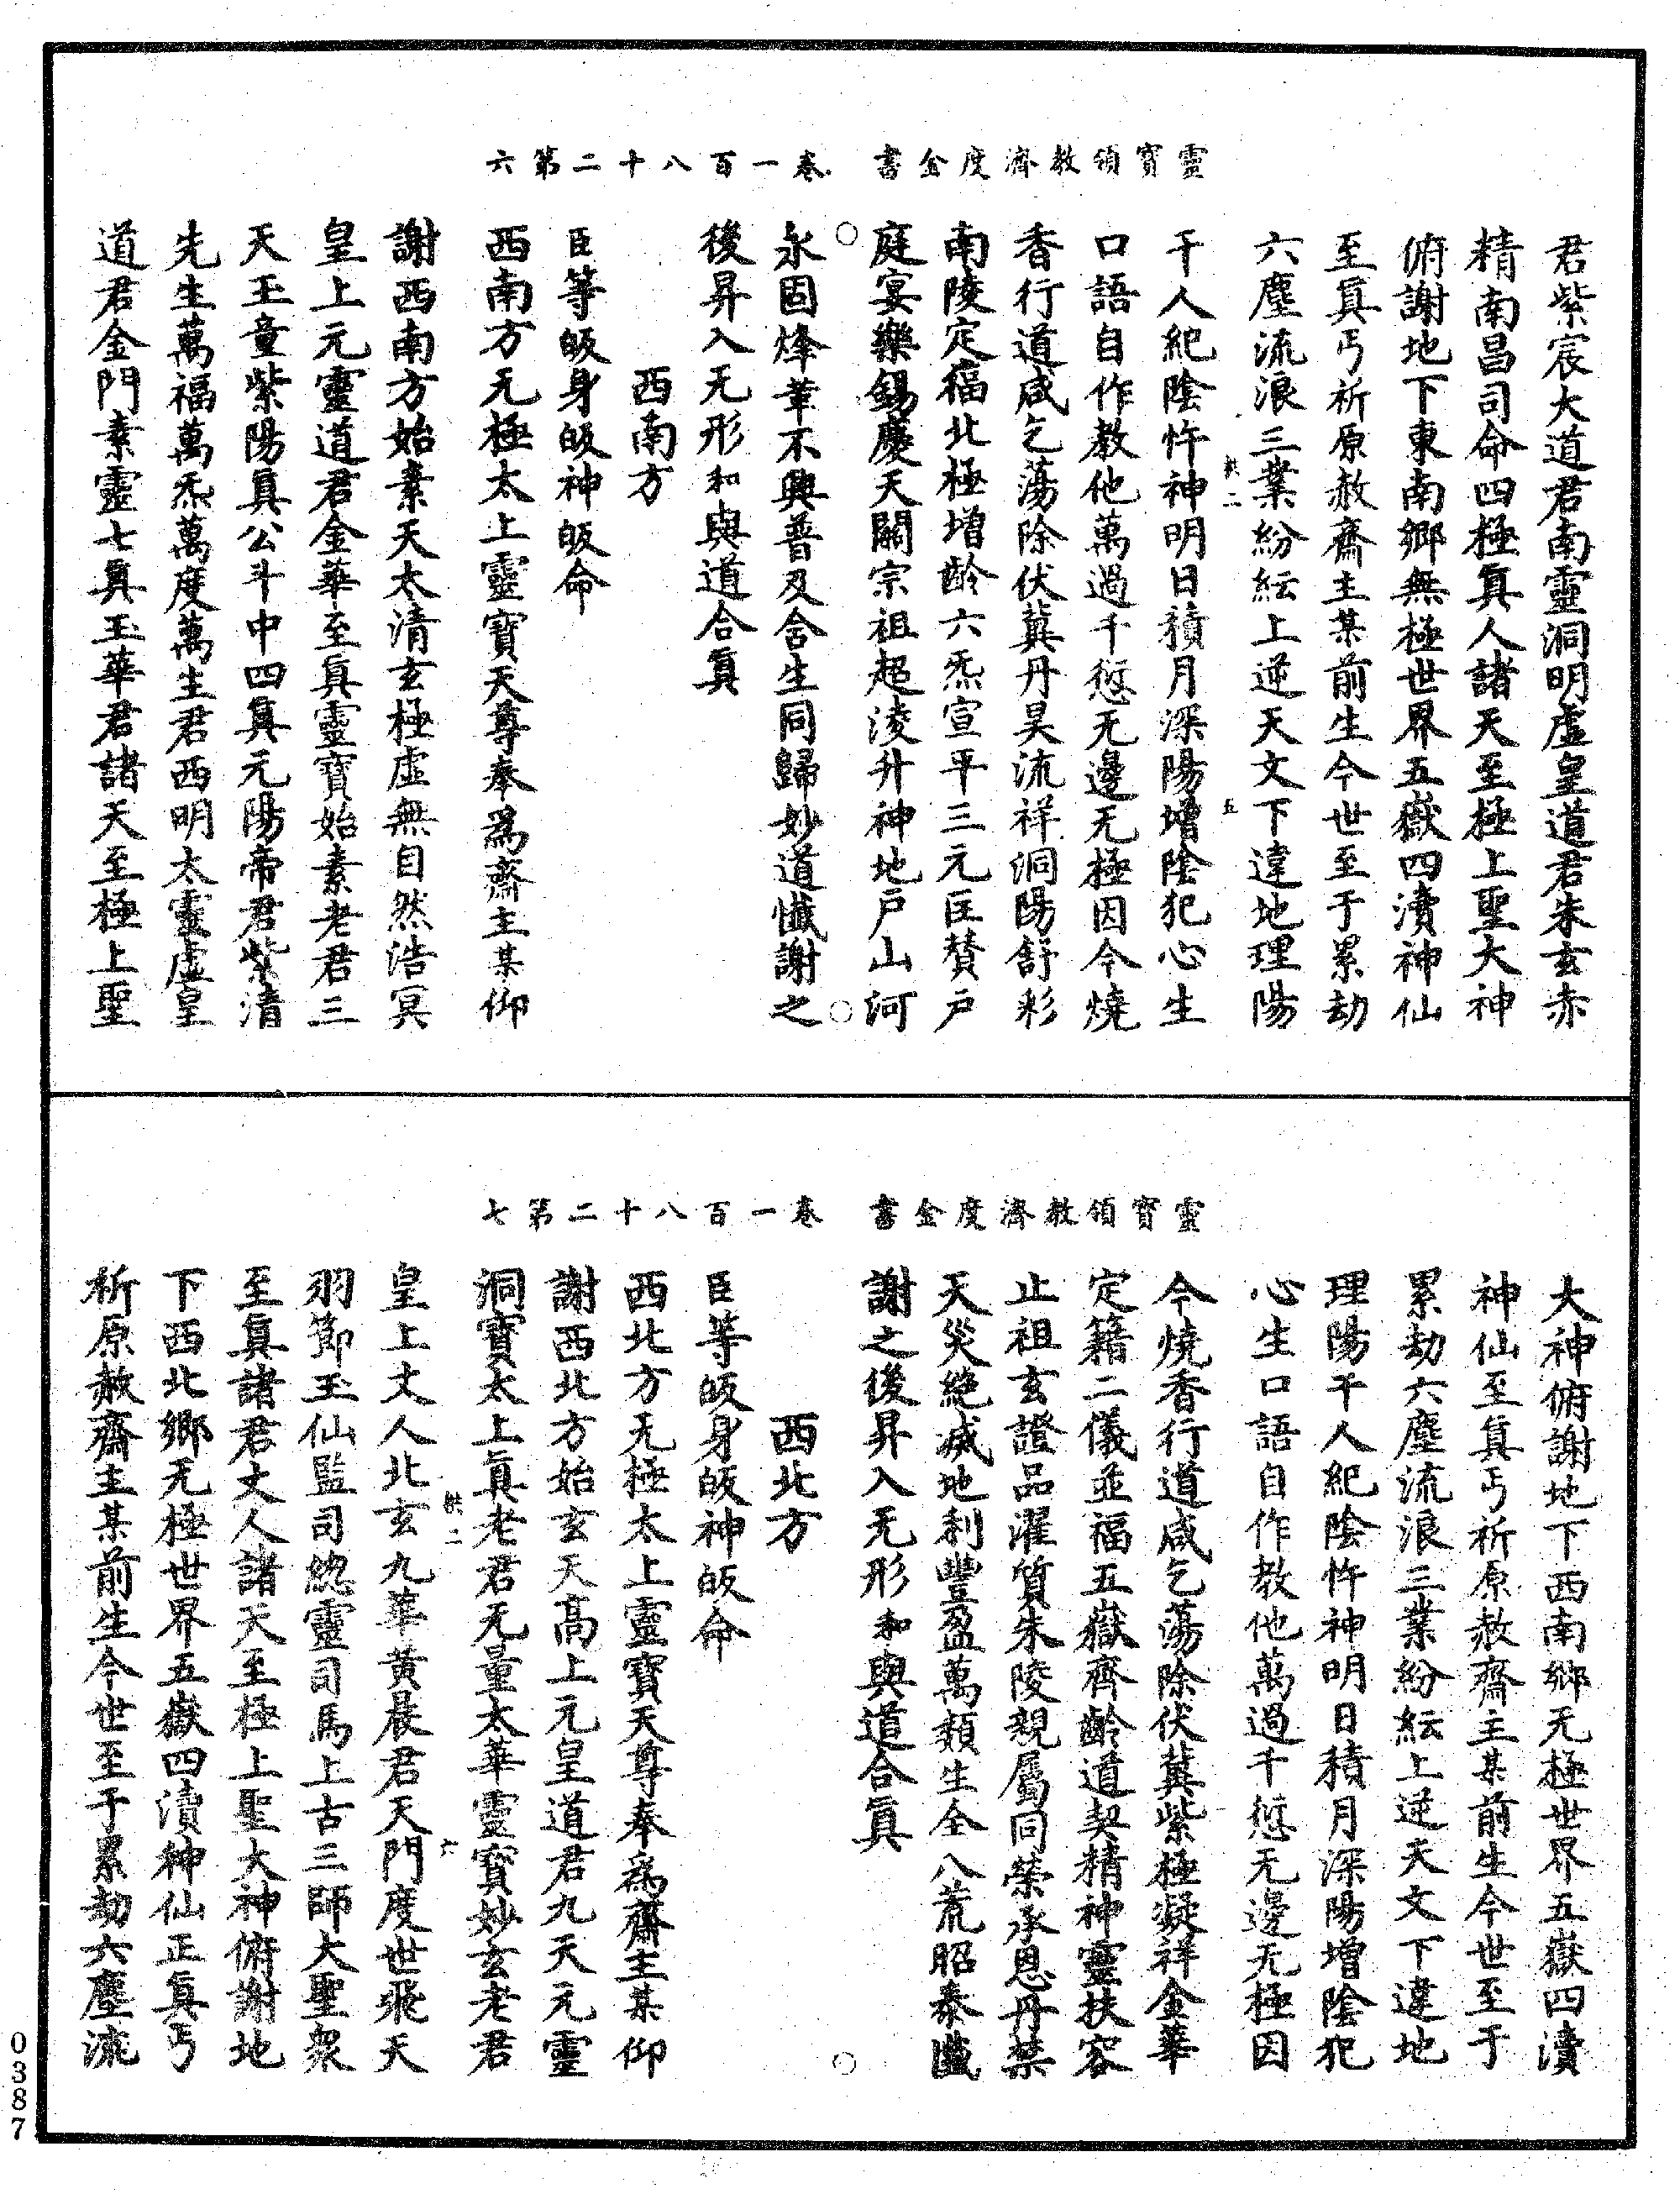 靈寶領教濟度金書　卷一百八十二第六
君紫宸大道君南靈洞明虛皇道君朱玄赤
精南昌司命四極眞人諸天至極上聖大神
俯謝地下東南鄉無極世界五嶽四瀆神仙
至眞丐祈原赦齋主某前生今世至于累劫
六塵流浪三業紛紜上逆天文下違地理陽
二　五
干人紀陰忤神明日積月深陽增陰犯心生
口語自作教他萬過千愆无邊无極因今燒
香行道咸乞蕩除伏冀丹昊流祥洞陽舒彩
南陵定福北極增齡六炁宣平三元匡贊戶
庭宴樂錫慶天關宗祖超淩升神地戶山河
永固烽革不興普及含生同歸妙道懺謝之
後昇入无形和與道合眞
西南方
臣等皈身皈神皈命
西南方无極太上靈寶天尊奉爲齋主某仰
謝西南方始素天太清玄極虛無自然浩冥
皇上元靈道君金華至眞靈寶始素老君三
天玉童紫陽眞公斗中四眞元陽帝君紫清
先生萬福萬炁萬度萬生君西明太靈虛皇
道君金門素靈七眞玉華君諸天至極上聖
靈寶領教濟度金書　卷一百八十二第七
大神俯謝地下西南鄉无極世界五嶽四瀆
神仙至眞丐祈原赦齋主某前生今世至于
累劫六塵流浪三業紛紜上逆天文下違地
理陽干人紀陰忤神明日積月深陽增陰犯
心生口語自作教他萬過千愆无邊无極因
今燒香行道咸乞蕩除伏冀紫極凝祥金華
定籍二儀並福五嶽齊齡道契精神靈扶容
止祖玄證品濯質朱陵親屬同榮承恩丹禁
天災絕滅地利豐盈萬類生全八荒昭泰懺
謝之後昇入无形和與道合眞
西北方
臣等皈身皈神皈命
西北方无極太上靈寶天尊奉爲齋主某仰
謝西北方始玄天高上元皇道君九天元靈
洞寶太上眞老君无量太華靈寶妙玄老君
二　六
皇上丈人北玄九華黃晨君天門度世飛天
羽節玉仙監司總靈司馬上古三師大聖衆
至眞諸君丈人諸天至極上聖大神俯謝地
下西北鄉无極世界五嶽四瀆神仙正眞丐
祈原赦齋主某前生今世至于累劫六塵流
0387